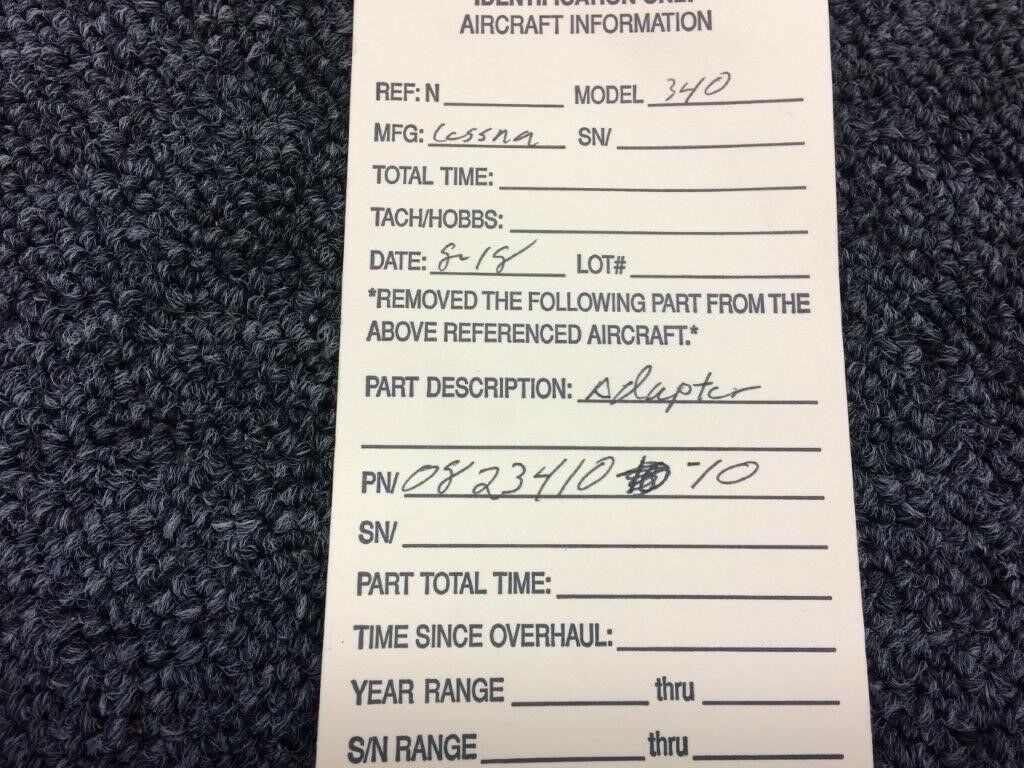 IDENTIFICATION ONLY
AIRCRAFT INFORMATION
REF: N MODEL 340
MFG: Cessna SN/
TOTAL TIME:
TACH/HOBBS:
DATE: 8-18 LOT#
*REMOVED THE FOLLOWING PART FROM THE
ABOVE REFERENCED AIRCRAFT.*
PART DESCRIPTION: Adapter
PN/ 0823410 -10
SN/
PART TOTAL TIME:
TIME SINCE OVERHAUL:
YEAR RANGE thru
S/N RANGE thru